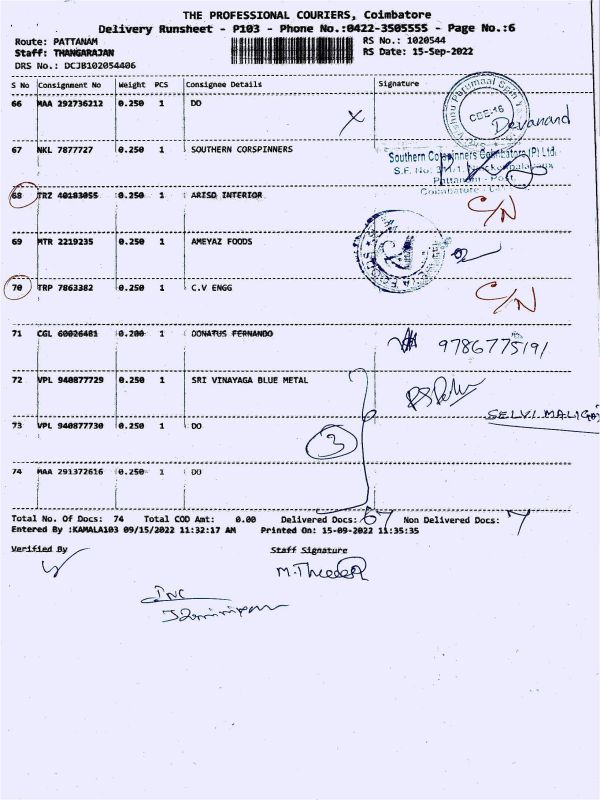 THE PROFESSIONAL COURIERS, Coimbatore
Delivery Runsheet - P103 - Phone No.:0422-3505555 - Page No.:6
Route: PATTANAM RS No.: 1020544
Staff: THANGARAJAN RS Date: 15-Sep-2022
DRS No.: DCJB102054406
S No Consignment No Weight PCS Consignee Details Signature
66 MAA 292736212 0.250 1 DO X CBE-16 Devanand
67 NKL 7877727 0.250 1 SOUTHERN CORSPINNERS
Southern Corspinners Coimbatore (P) Ltd.
Pattanam - Post,
68 TRZ 40183055 0.250 1 ARISO INTERIOR C/N
69 MTR 2219235 0.250 1 AMEYAZ FOODS
70 TRP 7863382 0.250 1 C.V ENGG C/N
71 CGL 60026481 0.200 1 DONATUS FERNANDO 9786775191
72 VPL 940877729 0.250 1 SRI VINAYAGA BLUE METAL
SELVI.MALIGAI
73 VPL 940877730 0.250 1 DO 3
74 MAA 291372616 0.250 1 DO
Total No. Of Docs: 74 Total COD Amt: 0.00 Delivered Docs: 67 Non Delivered Docs: 7
Entered By :KAMALA103 09/15/2022 11:32:17 AM Printed On: 15-09-2022 11:35:35
Verified By Staff Signature